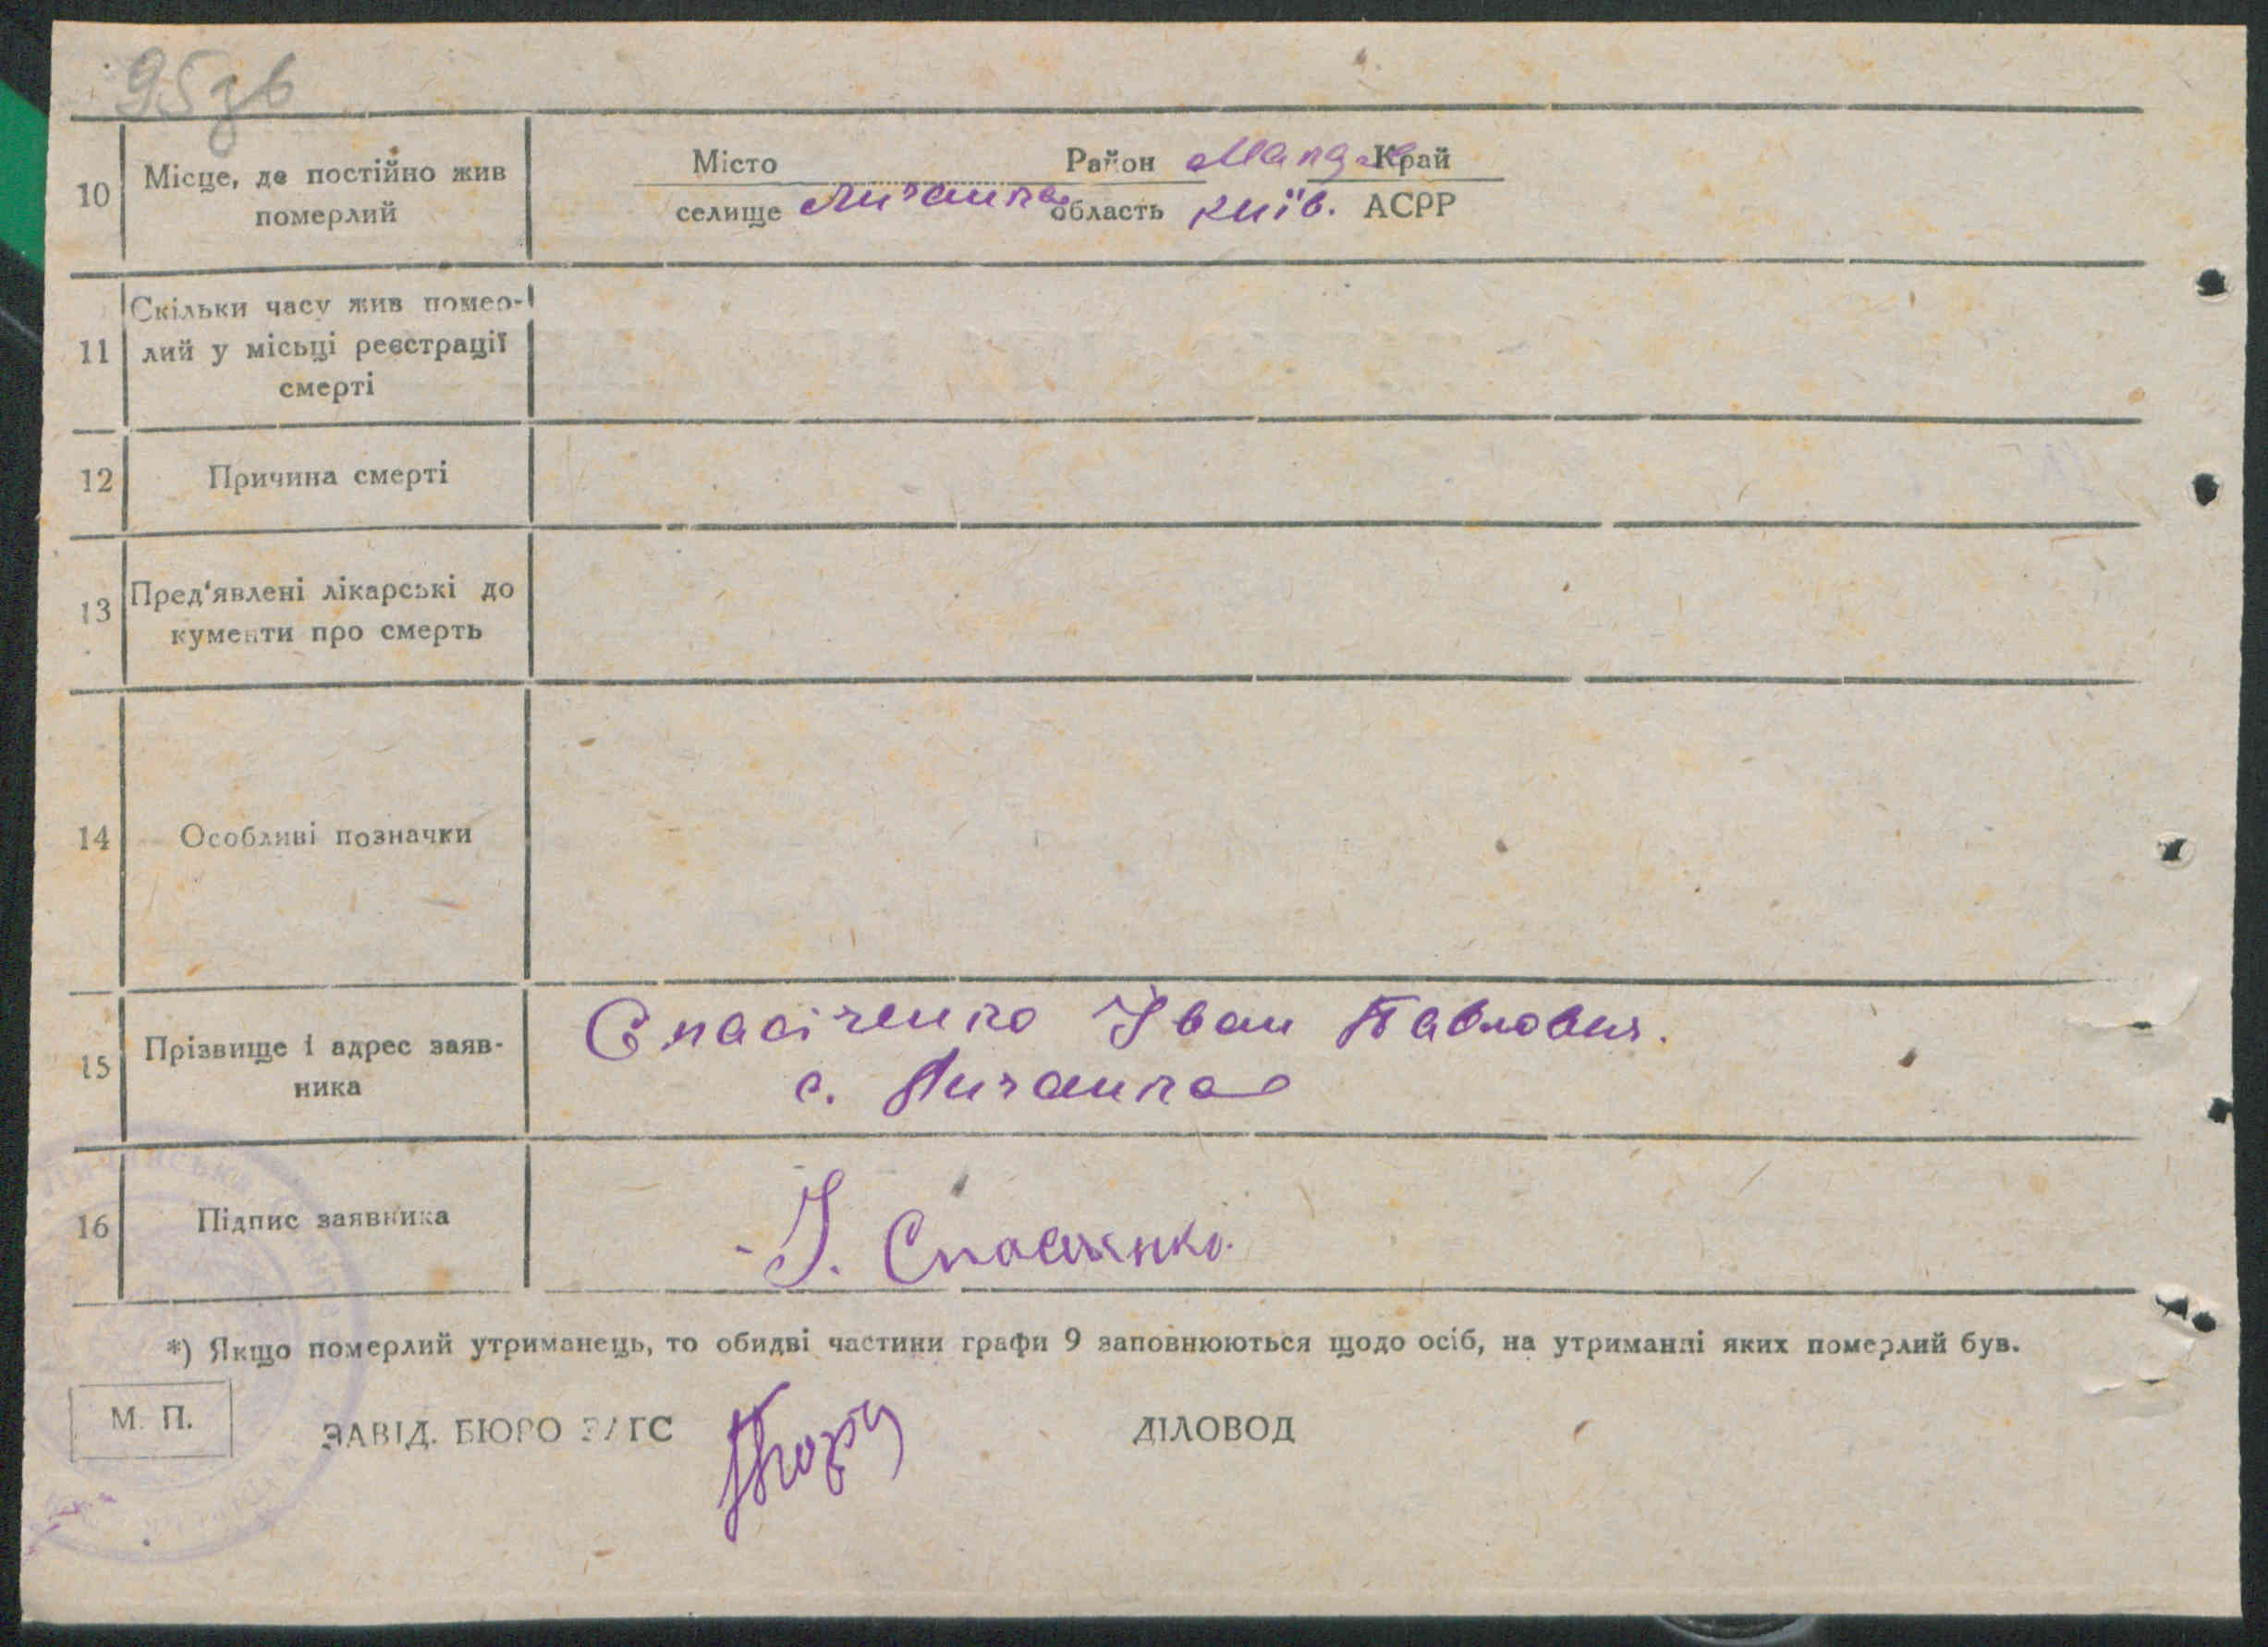 95зв
10 Місце, де постійно жив померлий
Місто Район Край
селище Личанка область київ. АСРР
11 Скільки часу жив помер-
лий у місьці реєстрації
смерті
12 Причина смерті
13 Пред'явлені лікарські до
кументи про смерть
14 Особливі позначки
15 Прізвище і адрес заяв-
ника
Спасіченко Іван Павлович.
с. Личанка
16 Підпис заявника
І. Спасіченко.
*) Якщо померлий утриманець, то обидві частини графи 9 заповнюються щодо осіб, на утриманні яких померлий був.
М. П. ЗАВІД. БЮРО ЗАГС ДІЛОВОД